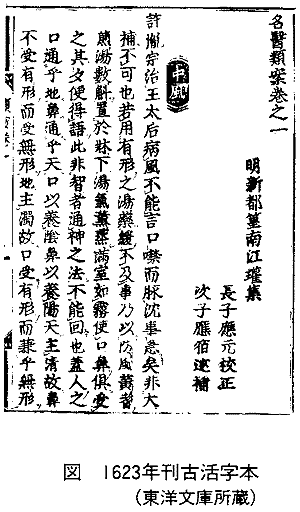 名醫類案卷之一
明新都篁南江瓘集
長子應元校正
次子應宿述補
中風
許胤宗治王太后病風不能言口噤而脉沈事急矣非大
補不可也若用有形之湯藥緩不及事乃以防風黃蓍
煎湯數斛置於牀下湯氣薰蒸滿室如霧使口鼻俱受
之其夕便得語此非智者通神之法不能回也蓋人之
口通乎地鼻通乎天口以養陰鼻以養陽天主清故鼻
不受有形而受無形地主濁故口受有形而兼乎無形
図 1623年刊古活字本
(東洋文庫所蔵)